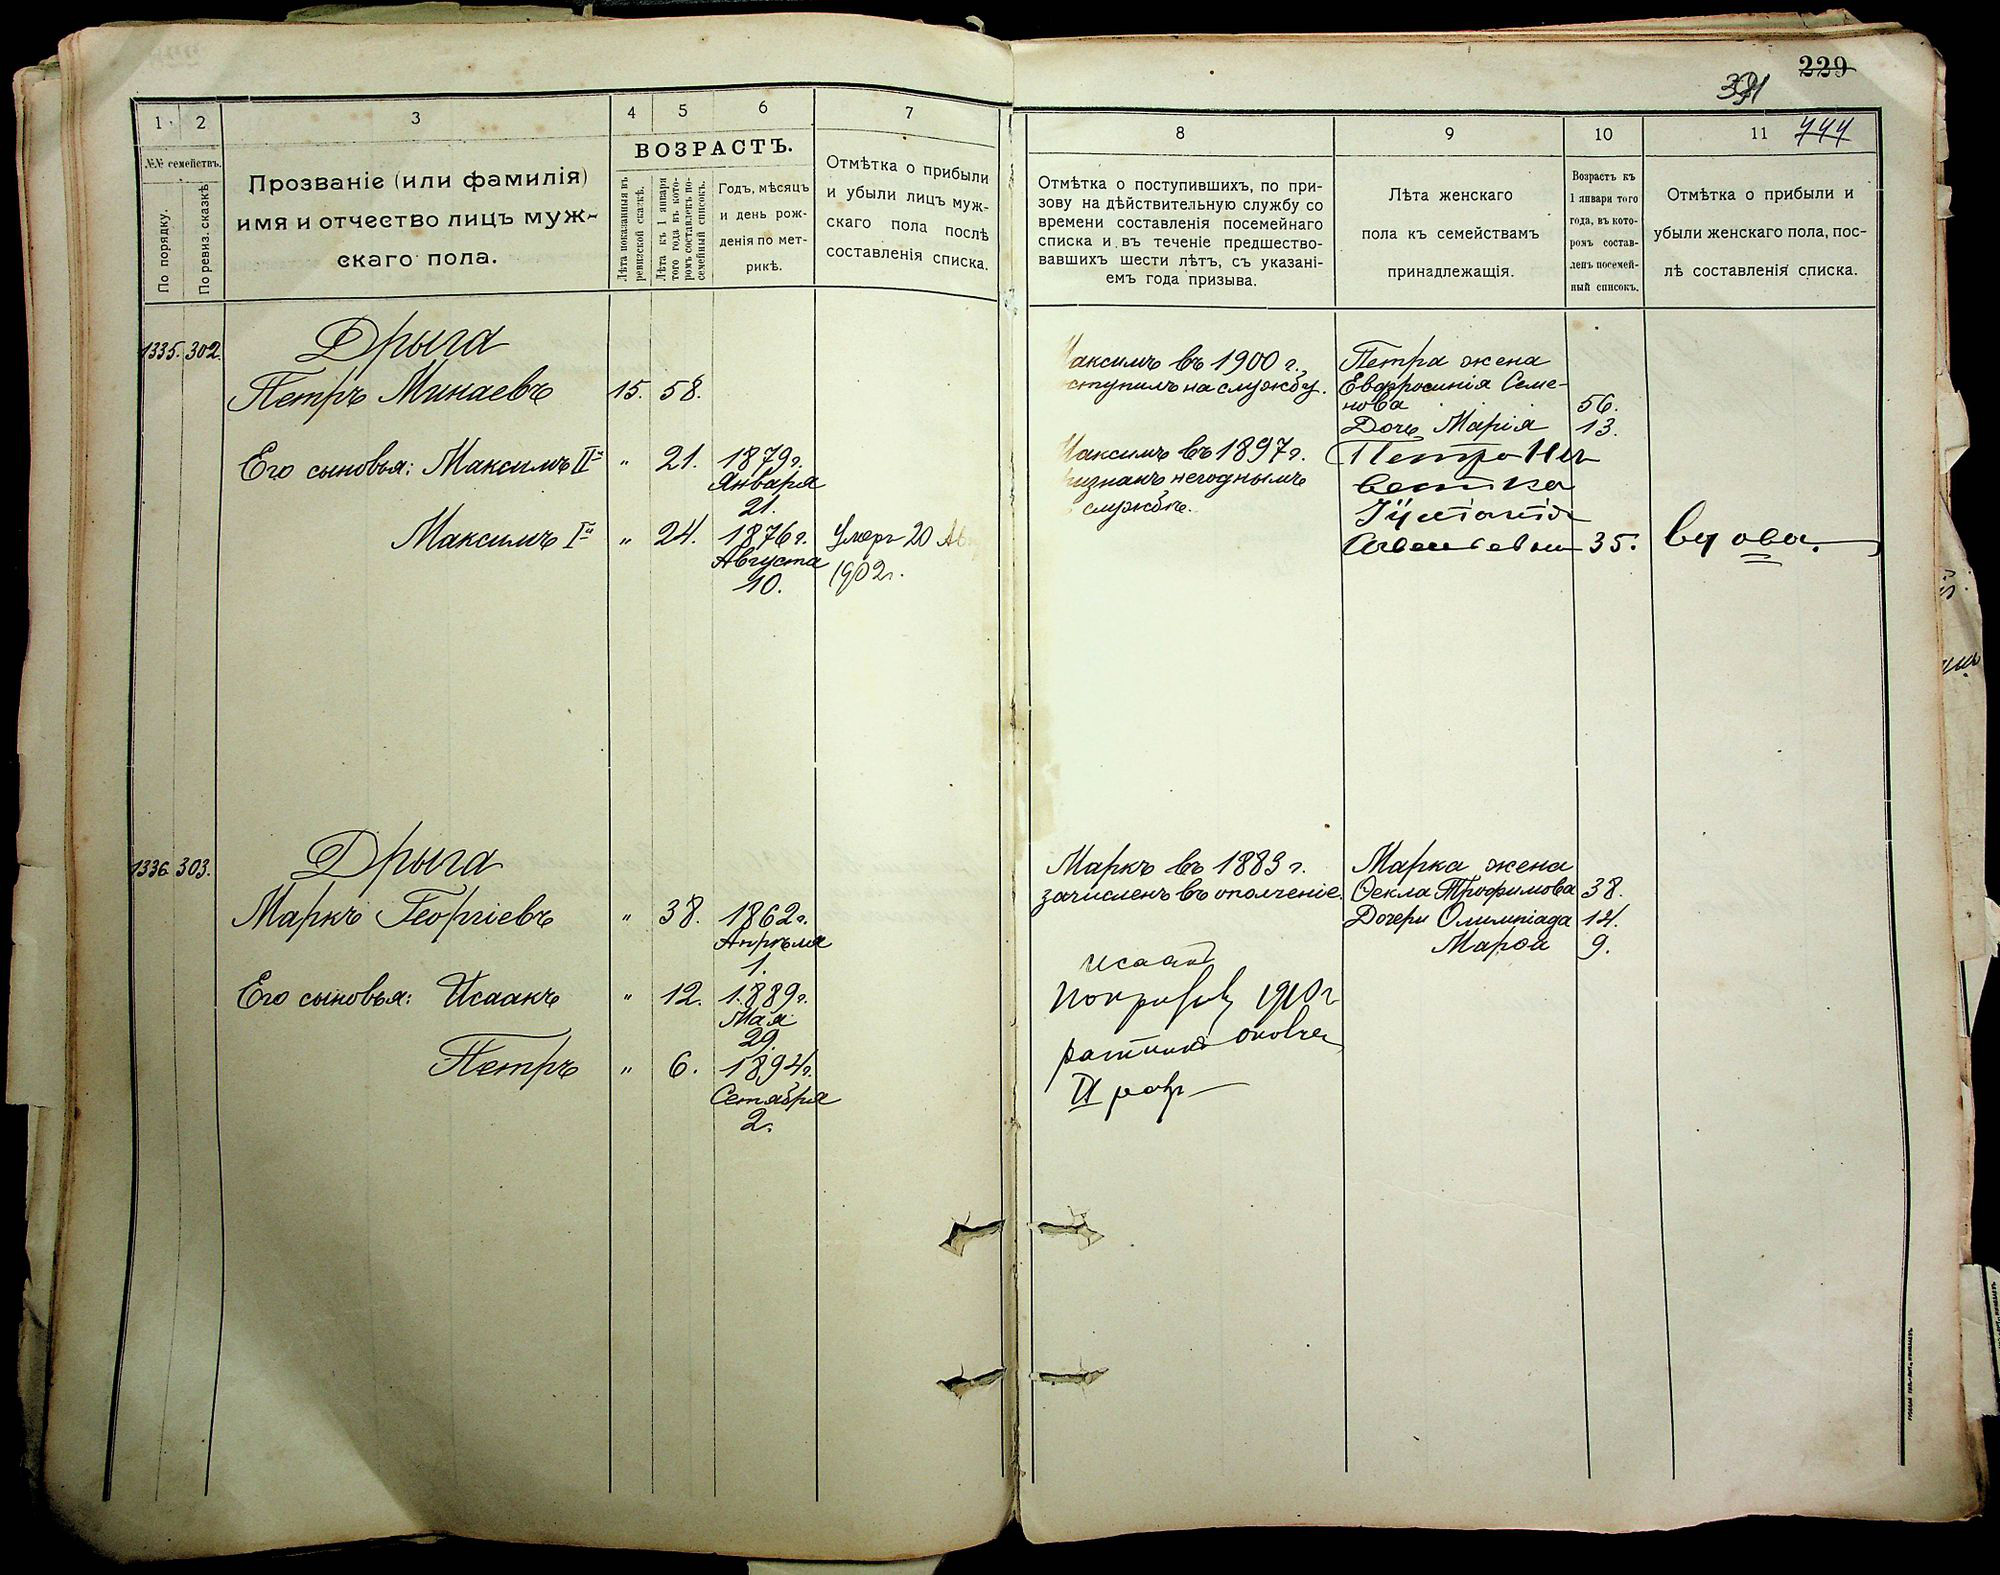 229
391
1
2
3
4
5
6
7
№№ семействъ.
По порядку.
По ревиз. сказкѣ
Прозваніе (или фамилія)
имя и отчество лицъ муж-
скаго пола.
ВОЗРАСТЪ.
Лѣта показанныя въ
ревизской сказкѣ.
Лѣта къ 1 января
того года въ кото-
ромъ составленъ по-
семейный списокъ.
Годъ, мѣсяцъ
и день рож-
денія по мет-
рикѣ.
Отмѣтка о прибыли
и убыли лицъ муж-
скаго пола послѣ
составленія списка.
8
9
10
11
444
Отмѣтка о поступившихъ, по при-
зову на дѣйствительную службу со
времени составленія посемейнаго
списка и въ теченіе предшество-
вавшихъ шести лѣтъ, съ указані-
емъ года призыва.
Лѣта женскаго
пола къ семействамъ
принадлежащія.
Возрастъ къ
1 января того
года, въ кото-
ромъ состав-
ленъ посемей-
ный списокъ.
Отмѣтка о прибыли и
убыли женскаго пола, пос-
лѣ составленія списка.
1335. 302. Дрыга
Петръ Минаевъ 15. 58.
Его сыновья: Максимъ II й " 21. 1879 г.
Января
21.
Максимъ I й " 24. 1876 г. Умеръ 20 Ав
Августа 1902 г.
10.
аксимъ въ 1900 г.
ступилъ на службу.
аксимъ въ 1897 г.
изнанъ негоднымъ
службѣ.
Петра жена
Евфросинія Семе-
нова 56.
Дочь Марія 13.
35. вдова.
1336. 303. Дрыга
Маркъ Георгіевъ " 38. 1862 г.
Апрѣля
1.
Его сыновья: Исаакъ " 12. 1889 г.
Мая
29.
Петръ " 6. 1894 г.
Сетября
2.
Маркъ въ 1883 г.
зачисленъ въ ополченіе.
Исаакъ
1910 г
ратник ополчен
II разр
Марка жена
Ѳекла Трофимова 38.
Дочери Олимпіада 14.
Марѳа 9.